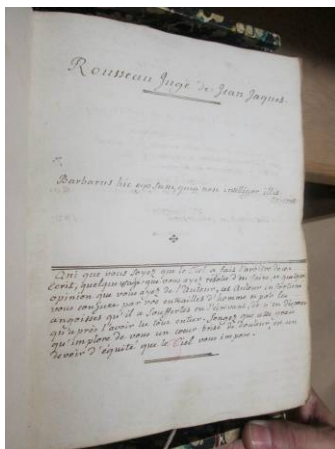 Rousseau Juge de Jean Jaques.
Barbarus hic ego sum, quia non intelligor illis.
Qui que vous soyez que le Ciel a fait l'arbitre de cet
écrit, quelque usage que vous ayez résolu d'en faire, et quelque
opinion que vous ayez de l'Auteur, cet Auteur infortuné
vous conjure par vos entrailles d'homme et par les
angoisses qu'il a souffertes en l'écrivant, de n'en disposer
qu'après l'avoir lu tout entier. Songez que cette grace
qu'implore de vous un cœur brisé de douleur, est un
devoir d'équité que le Ciel vous impose.